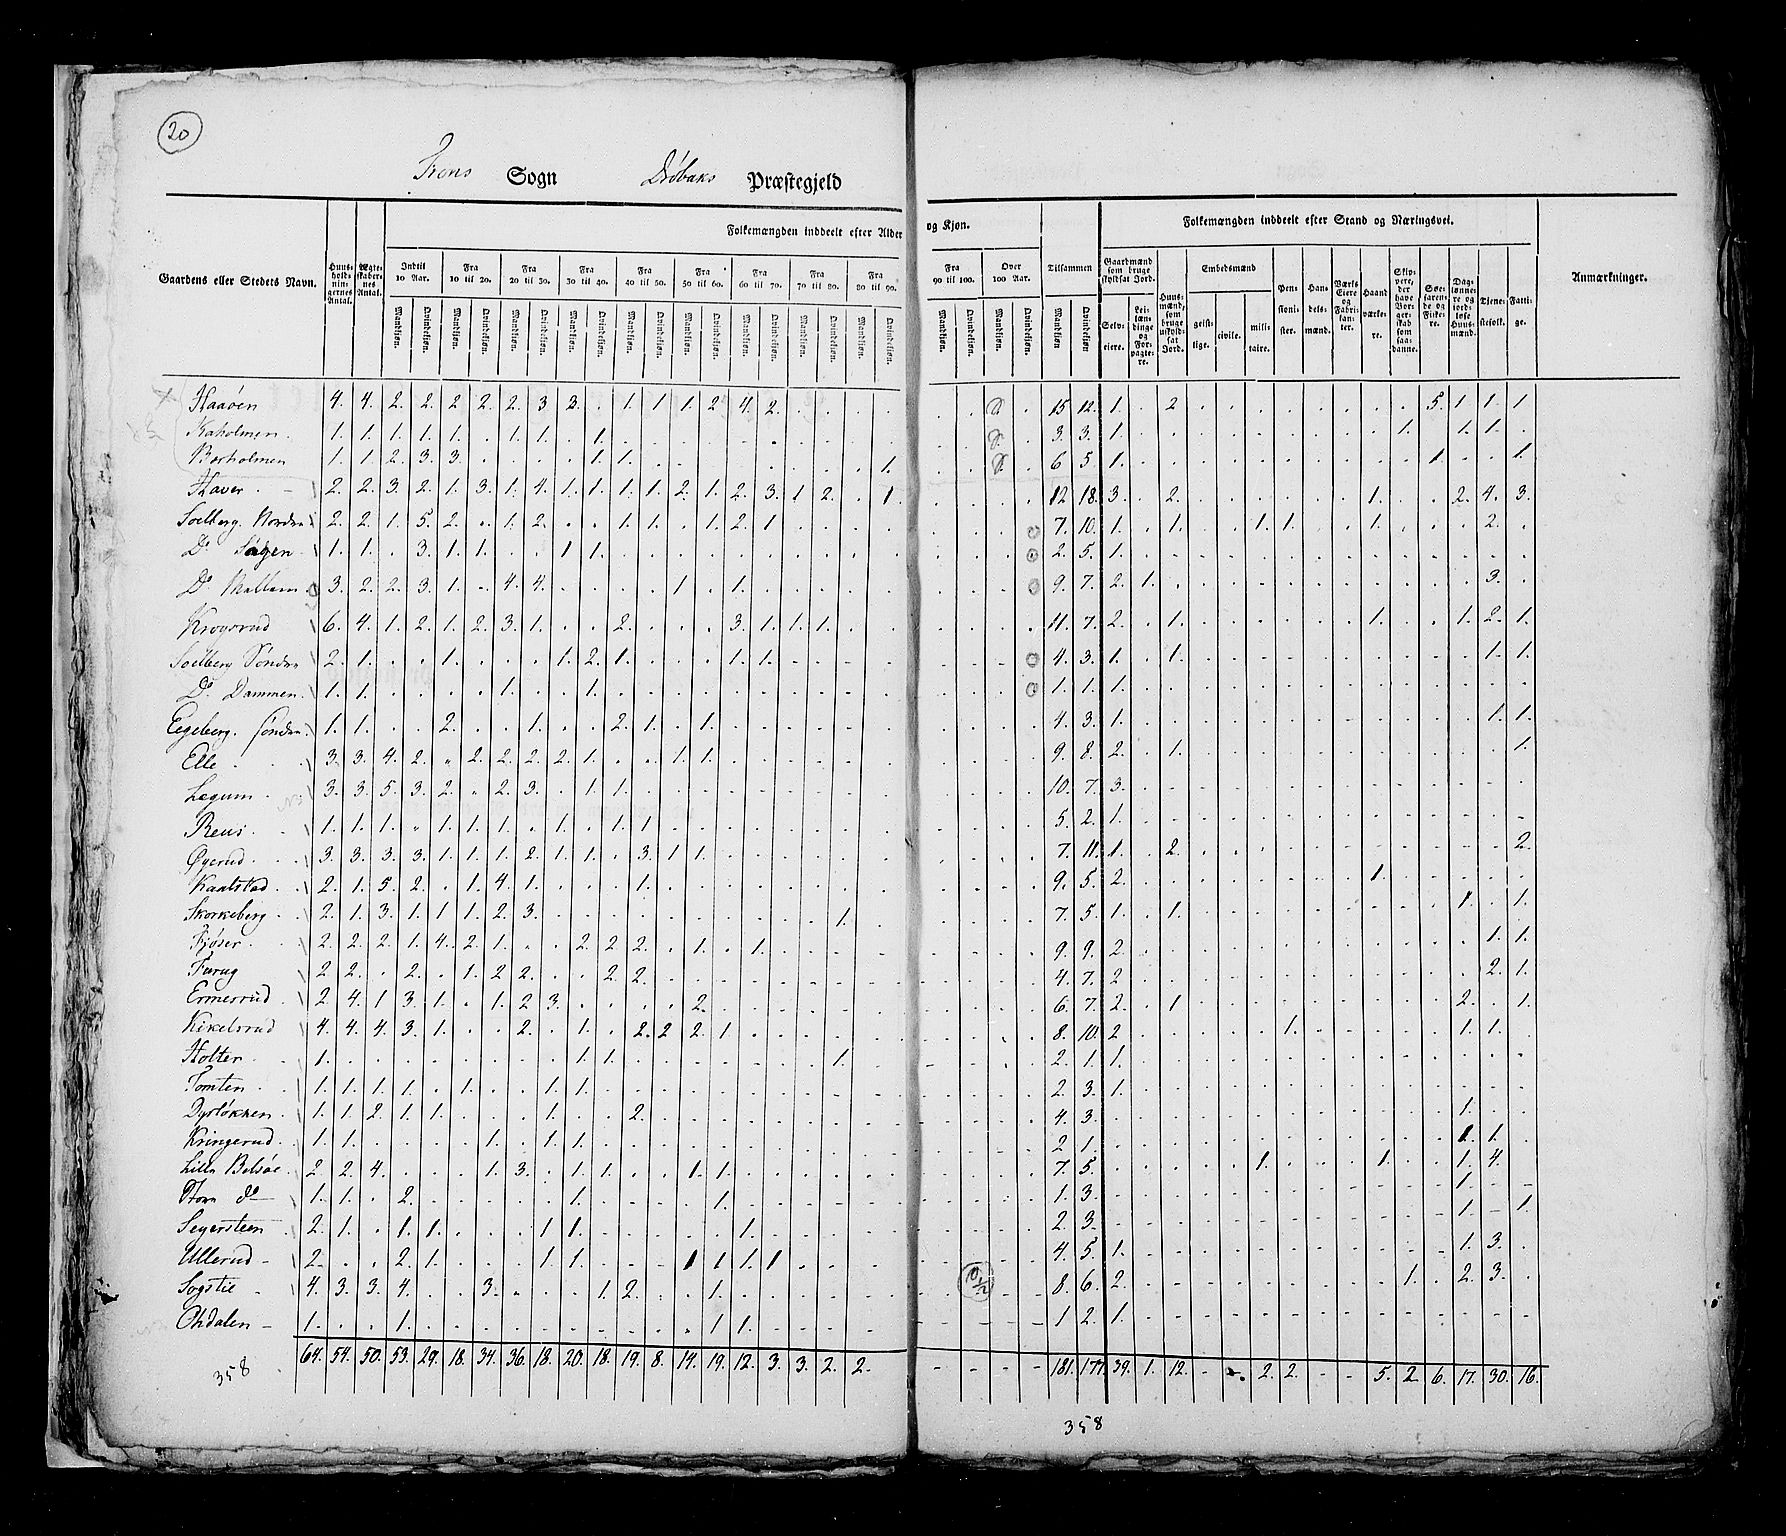 20
Frons Sogn Drøbaks Præstegjeld
Folkemængden inddeelt efter Alder og Kjøn.
Folkemængden inddeelt efter Stand og Næringsvei.
Gaardens eller Stedets Navn. Huusholdningernes Antal. Ægteskabernes Antal. Indtil 10 Aar. Fra 10 til 20. Fra 20 til 30. Fra 30 til 40. Fra 40 til 50. Fra 50 til 60. Fra 60 til 70. Fra 70 til 80. Fra 80 til 90. Fra 90 til 100. Over 100 Aar. Tilsammen Gaardmænd som bruge skyldsat Jord. Huusmænd, som bruge uskyldsat Jord. Embedsmænd Pensionister. Handelsmænd. Værks Eiere og Fabrikanter. Haandværkere. Skippere, der have Borgerskab som saadanne. Søefarende og Fiskere. Daglønnere og jordløse Huusmænd. Tjenestefolk. Fattige. Anmærkninger.
Mandkjøn. Qvindekjøn. Selveiere. Leilændinge og Forpagtere. geistlige. civile. militaire.
Haaøen 4. 4. 2. 2. 2 2. 2. 3 3. . 1. 1 1. 2 4. 2. 15 12. 1. . 2 5. 1. 1. 1
Kaholmen. 1. 1. 1. 1. 1. . 1. 1. . 1. 3. 3. 1. 1. 1. 1.
Borholmen 1. 1. 2. 3. 3. 1. 1. 1. 6 5. 1. 1. 1.
Haver. 2. 2. 3. 2. 1. 3. 1. 4. 1. 1. 1. 1. 2. 1. 2. 3. 1 2. . 1. 12 18. 3. . 2. 1. 2. 4. 3.
Soelberg Nordre 2. 2. 1. 5. 2. . 1. 2. . . 1. 1. . 1. 2. 1 7. 10. 1. . 1. 1. 1. 1. 2.
Do Skogen 1. 1. . 3. 1. 1. . . 1 1. 2. 5. 1.
Do 3. 2. 2. 3. 1. . 4. 4. 1 . 1. 9. 7. 2. 1. 3.
Krogsrud 6. 4. 1. 2. 1. 2. 3. 1. . . 2. . . . 3. 1. 1. 1. 11. 7. 2. . 1. 1. 1. 2. 1.
Soelberg Søndre 2. 1. . . 1. . . . 1. 2. 1. . . . 1. 1. 4. 3. 1. . 1. 1. 1.
Do Dammen. 1. 1. 1. 1. 1. 1. 1.
Eegeberg. søndre. 1. 1. . . 2. . . 1. . . 2. 1. . 1. 4. 3. 1. 1. 1.
Elle 3. 3. 4. 2. " 2. 2. 2. 2. 1. . . 1. 1. 9. 8. 2. . 1. 1.
Lægum. 3. 3. 5. 3. 2. " 2. 3. . 1. 1. 10. 7. 3.
Reus. 1. 1. 1. " 1. 1. 1. . 1. . 1. 1. 5. 2. 1.
Øyerud. 3. 3. 3. 3. 1. 1. 1. 2. 1. 1. . 3. 1 1. 7. 11. 1. . 2. 2.
Kaatstad 2. 1. 5. 2. . 1. 4. 1. . . . 1. 9. 5. 2. 1.
Skorkeberg 2. 1. 3. 1. 1 1. 2. 3. 1. 7. 5. 1. . 1. 1. . 1.
Fjøser. 2. 2. 2. 1. 4. 2. 1. . . 2. 2. 2. . 1. . 1. 9. 9. 2. 1. 1.
Farug 2 2. . 2. . 1. 2 2. . . 2. 2. 4. 7. 2 2. 1.
Ermesrud 2. 4. 1 3. 1. . 1. 2 3. . . . . 2. 6. 7. 2. . 1 2. . 1.
Kikelsrud 4. 4. 4. 3. 1. . . 2. . 1. . 2. 2 2. 1. 8. 10. 2 1. 1. 1.
Holter. 1. 1. 1. 1. 2. 1. 1.
Tomten. 1. 1. 1. 1. . 1. . . 1. 1. 2 3. 1.
Dyrløkken. 1. 1. 2. 1. 1. . . . 1. . . 2. 4. 3. 1.
Kringerud. 1. 1. 1. . 1. 1. 2 1. 1. 1.
Lille Belsøe. 2. 2. 4. . . . 1. 3. . 1. 1. . . 1. 1. 7. 5. 1. 1. 1. 4.
Store do 1. 1. . 2. 1. 1. 1. 3. 1.
Segersteen 2. 1. . 1. 1. . . . 1 1. 1. 2. 3. 1. . 1.
Ullerud 2. . . 2. 1. . . . 1. 1. . . . 1 1 1. 1 4. 5. 1. 1. 3.
Sogstie 4. 3. 3. 4. . . 3. . . . 1. 2. . . 1. 8. 6. 2. 1. . 2. 3.
Ohdalen 1. . . 1. 1 1. 1 2. 1.
64. 54. 50. 53. 29. 18. 34. 36. 18. 20. 18. 19. 8. 14. 19. 12. 3. 3. 2. 2. 181. 177. 39. 1. 12. 2. 2. 5. 2 6. 17. 30. 16.
358
358